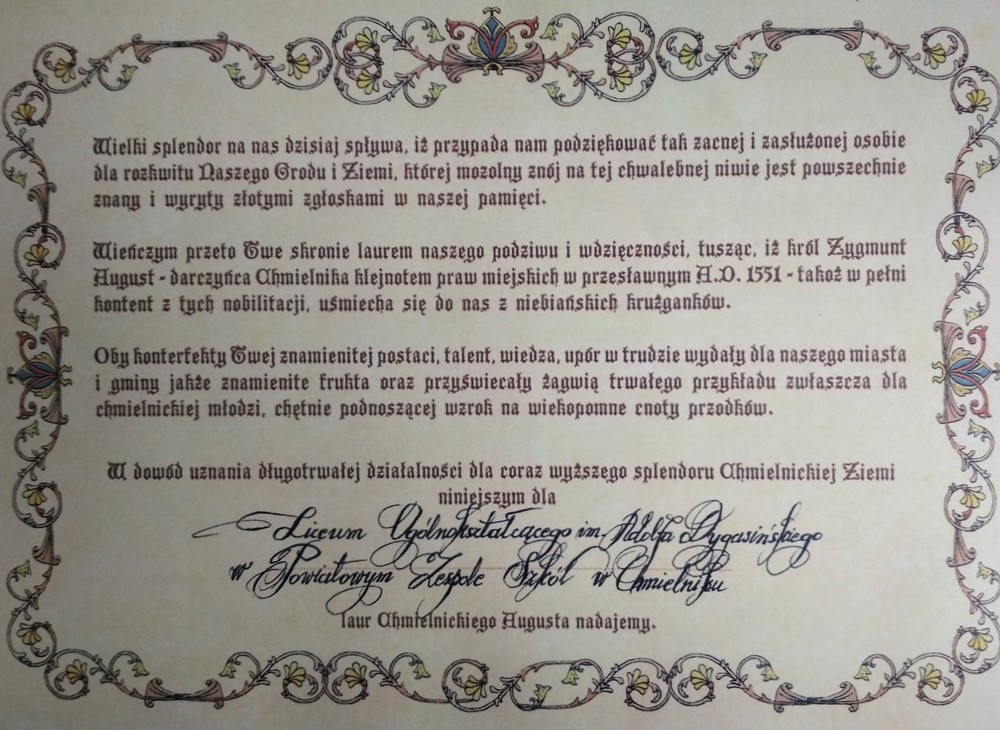 Wielki splendor na nas dzisiaj spływa, iż przypada nam podziękować tak zacnej i zasłużonej osobie
dla rozkwitu Naszego Grodu i Ziemi, której mozolny znój na tej chwalebnej niwie jest powszechnie
znany i wyryty złotymi zgłoskami w naszej pamięci.
Wieńczym przeto Twe skronie laurem naszego podziwu i wdzięczności, tusząc, iż król Zygmunt
August - darczyńca Chmielnika klejnotem praw miejskich w przesławnym A.D. 1551 - takoż w pełni
kontent z tych nobilitacji, uśmiecha się do nas z niebiańskich krużganków.
Oby konterfekty Twej znamienitej postaci, talent, wiedza, upór w trudzie wydały dla naszego miasta
i gminy jakże znamienite frukta oraz przyświecały żagwią trwałego przykładu zwłaszcza dla
chmielnickiej młodzi, chętnie podnoszącej wzrok na wiekopomne cnoty przodków.
W dowód uznania długotrwałej działalności dla coraz wyższego splendoru Chmielnickiej Ziemi
niniejszym dla
Liceum Ogólnokształcącego im. Adolfa Dygasińskiego
w Powiatowym Zespole Szkół w Chmielniku
laur Chmielnickiego Augusta nadajemy.